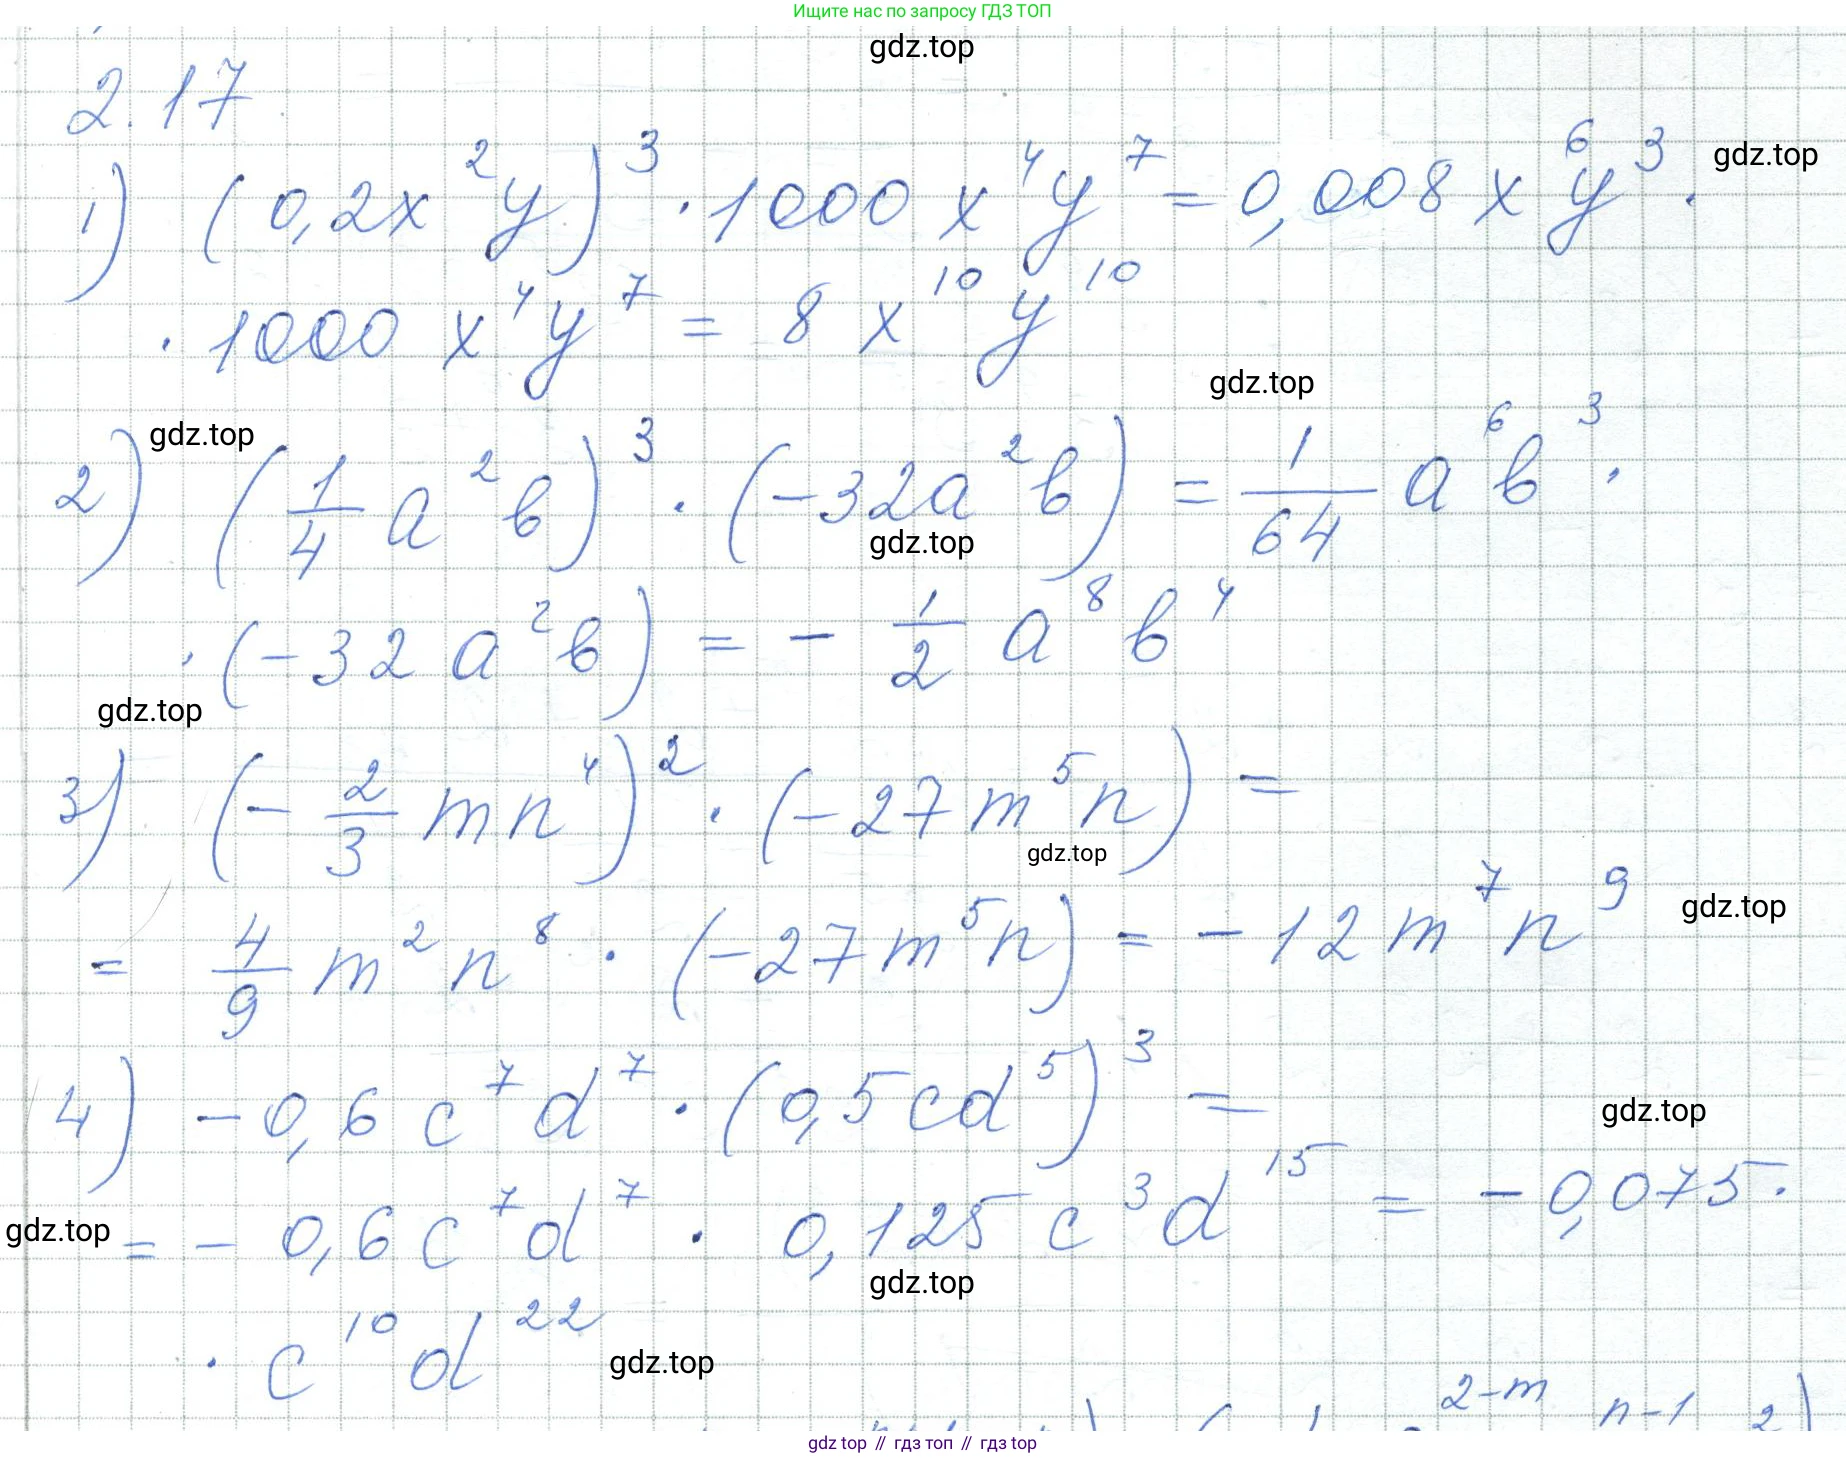 Ищите нас по запросу ГДЗ ТОП
gdz.top
2.17
1) (0,2x²y)³ · 1000x⁴y⁷ = 0,008x⁶y³ ·
gdz.top
· 1000x⁴y⁷ = 8x¹⁰y¹⁰
gdz.top
gdz.top
2) (1/4 a²b)³ · (-32a²b) = 1/64 a⁶b³ ·
gdz.top
· (-32a²b) = - 1/2 a⁸b⁴
gdz.top
3) (- 2/3 mn⁴)² · (-27m⁵n) =
gdz.top
= 4/9 m²n⁸ · (-27m⁵n) = -12m⁷n⁹
gdz.top
4) -0,6c⁷d⁷ · (0,5cd⁵)³ =
gdz.top
= -0,6c⁷d⁷ · 0,125c³d¹⁵ = -0,075 ·
gdz.top
gdz.top
· c¹⁰d²²
gdz.top
2-m n-1 2)
gdz top // гдз топ // гдз top